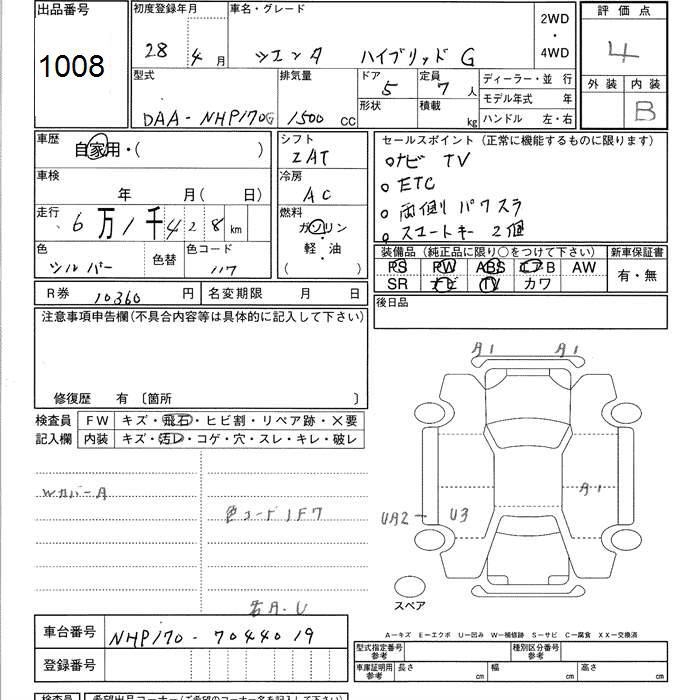 出品番号 1008
初度登録年月 28 4月
車名・グレード シエンタ ハイブリッド G
2WD・4WD
評価点 4
外装 内装 B
型式 DAA-NHP170G
排気量 1500 CC
ドア 5 形状
定員 7人 積載 kg
ディーラー・並行
モデル年式 年
ハンドル 左・右
車歴 自家用・( )
シフト 2AT
セールスポイント(正常に機能するものに限ります)
ナビ TV
ETC
両側パワスラ
スマートキー 2個
車検 年 月( 日)
冷房 AC
走行 6万1千428km
燃料 ガソリン 軽・油 ( )
色 シルバー 色替 色コード 117
装備品(純正品に限り○をつけて下さい) 新車保証書
PS PW ABS エアB AW 有・無
SR ナビ TV カワ
R券 10360円 名変期限 月 日
後日品
注意事項申告欄(不具合内容等は具体的に記入して下さい)
修復歴 有〔箇所 〕
検査員記入欄
FW キズ・飛石・ヒビ割・リペア跡・×要
内装 キズ・汚レ・コゲ・穴・スレ・キレ・破レ
WカバーA
色コード1F7
A1 A1
A1
UA2 U3
スペア
A-キズ E-エクボ U-凹み W-補修跡 S-サビ C-腐食 XX-交換済
車台番号 NHP170-7044019
登録番号
型式指定番号 参考 種別区分番号 参考
車庫証明用 参考 長さ cm 幅 cm 高さ cm
検査員 希望出品コーナー(ご希望のコーナー名を記入下さい)